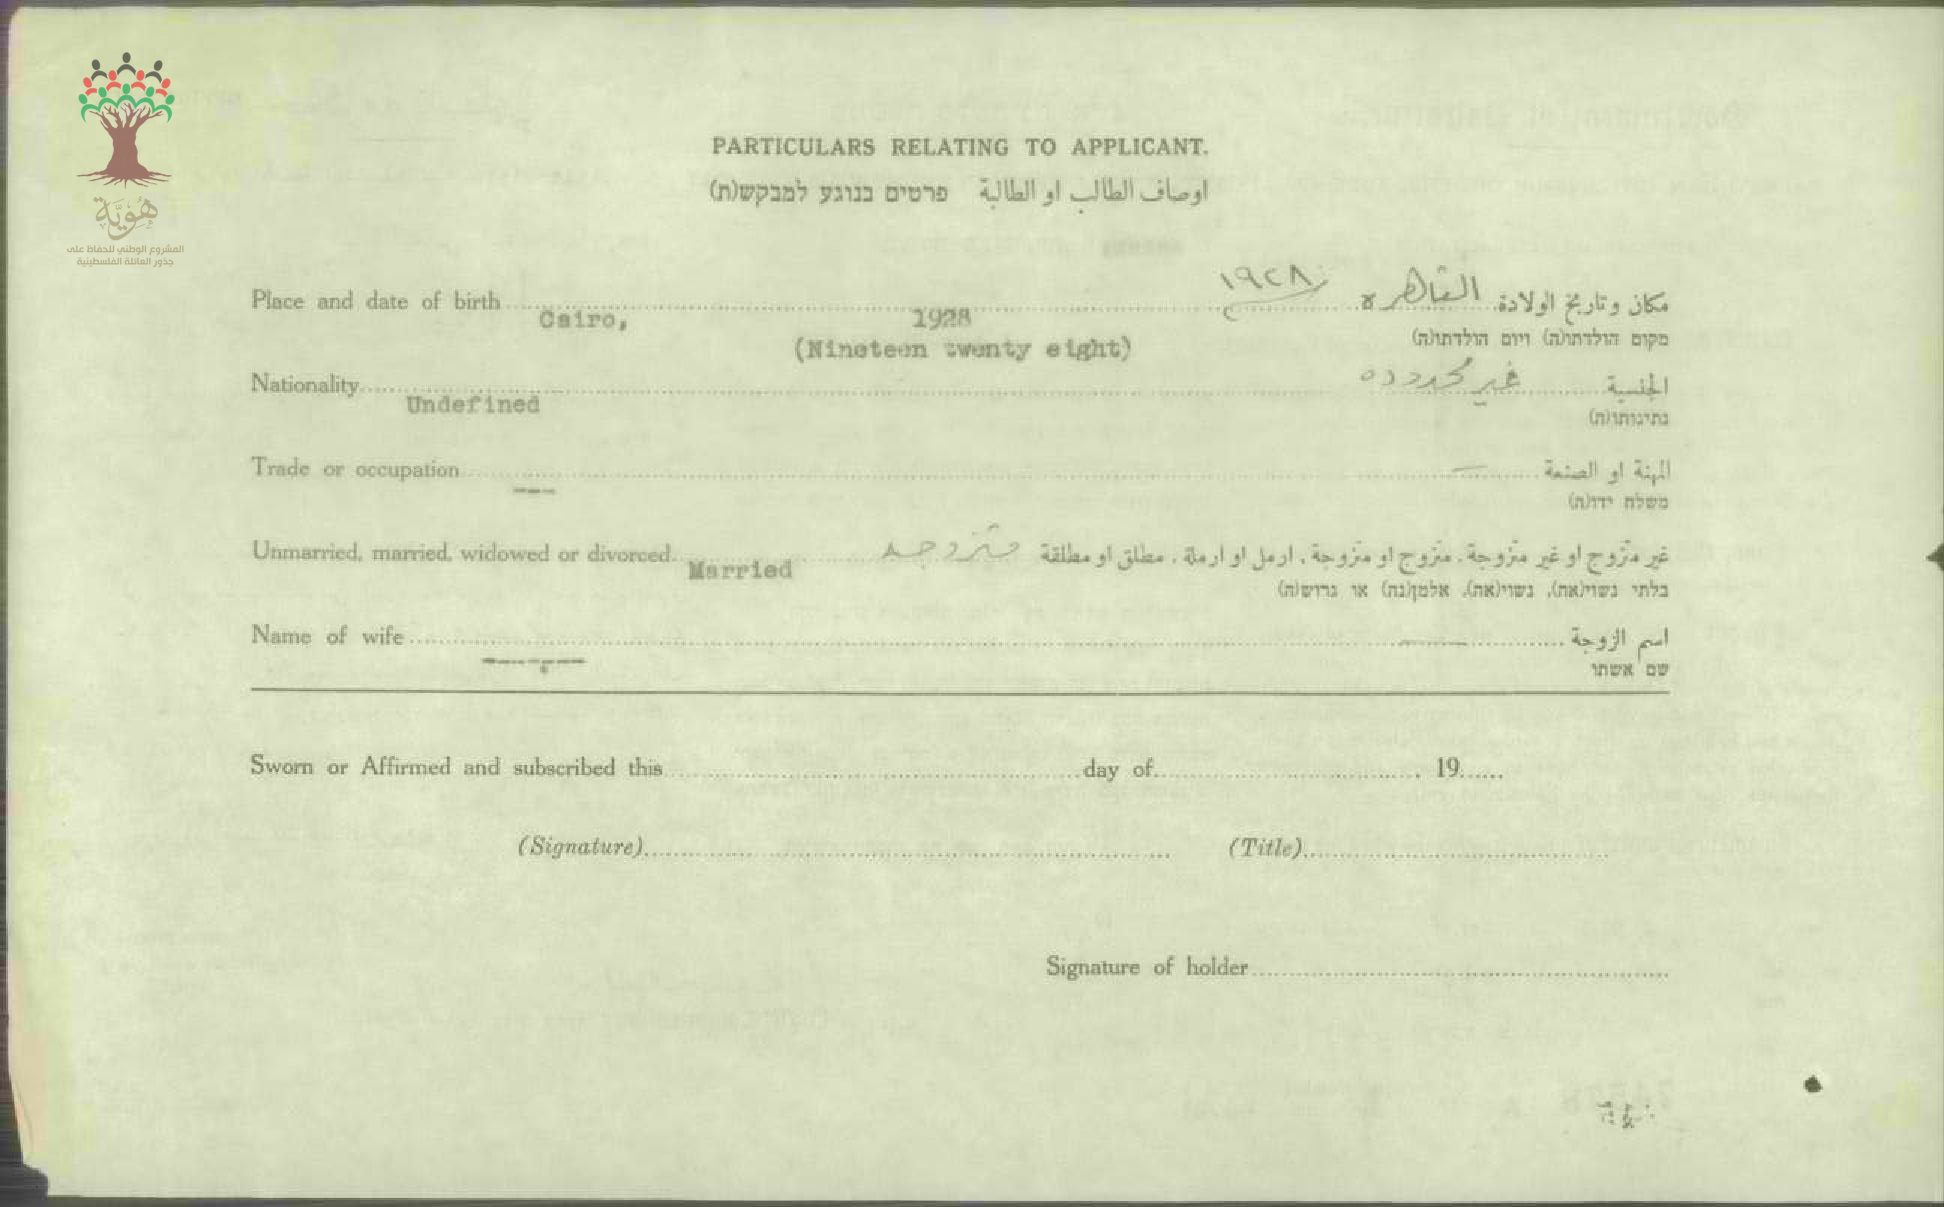 هُوِيَّة
المشروع الوطني للحفاظ على
جذور العائلة الفلسطينية
PARTICULARS RELATING TO APPLICANT.
اوصاف الطالب او الطالبة פרטים בנוגע למבקש(ת)
Place and date of birth القاهرة سنة ١٩٢٨ مكان وتاريخ الولادة
Cairo, 1928
מקום הולדתו(ה) ויום הולדתו(ה)
(Nineteen twenty eight)
Nationality غير محدوده الجنسية
Undefined
נתינותו(ה)
Trade or occupation — المهنة او الصنعة
---
משלח ידו(ה)
Unmarried, married, widowed or divorced متزوجه غير متزوج او غير متزوجة، متزوج او متزوجة، ارمل او ارملة، مطلق او مطلقة
Married
בלתי נשוי(אה), נשוי(אה), אלמן(נה) או גרוש(ה)
Name of wife — اسم الزوجة
-------
שם אשתו
Sworn or Affirmed and subscribed this day of 19
(Signature) (Title)
Signature of holder